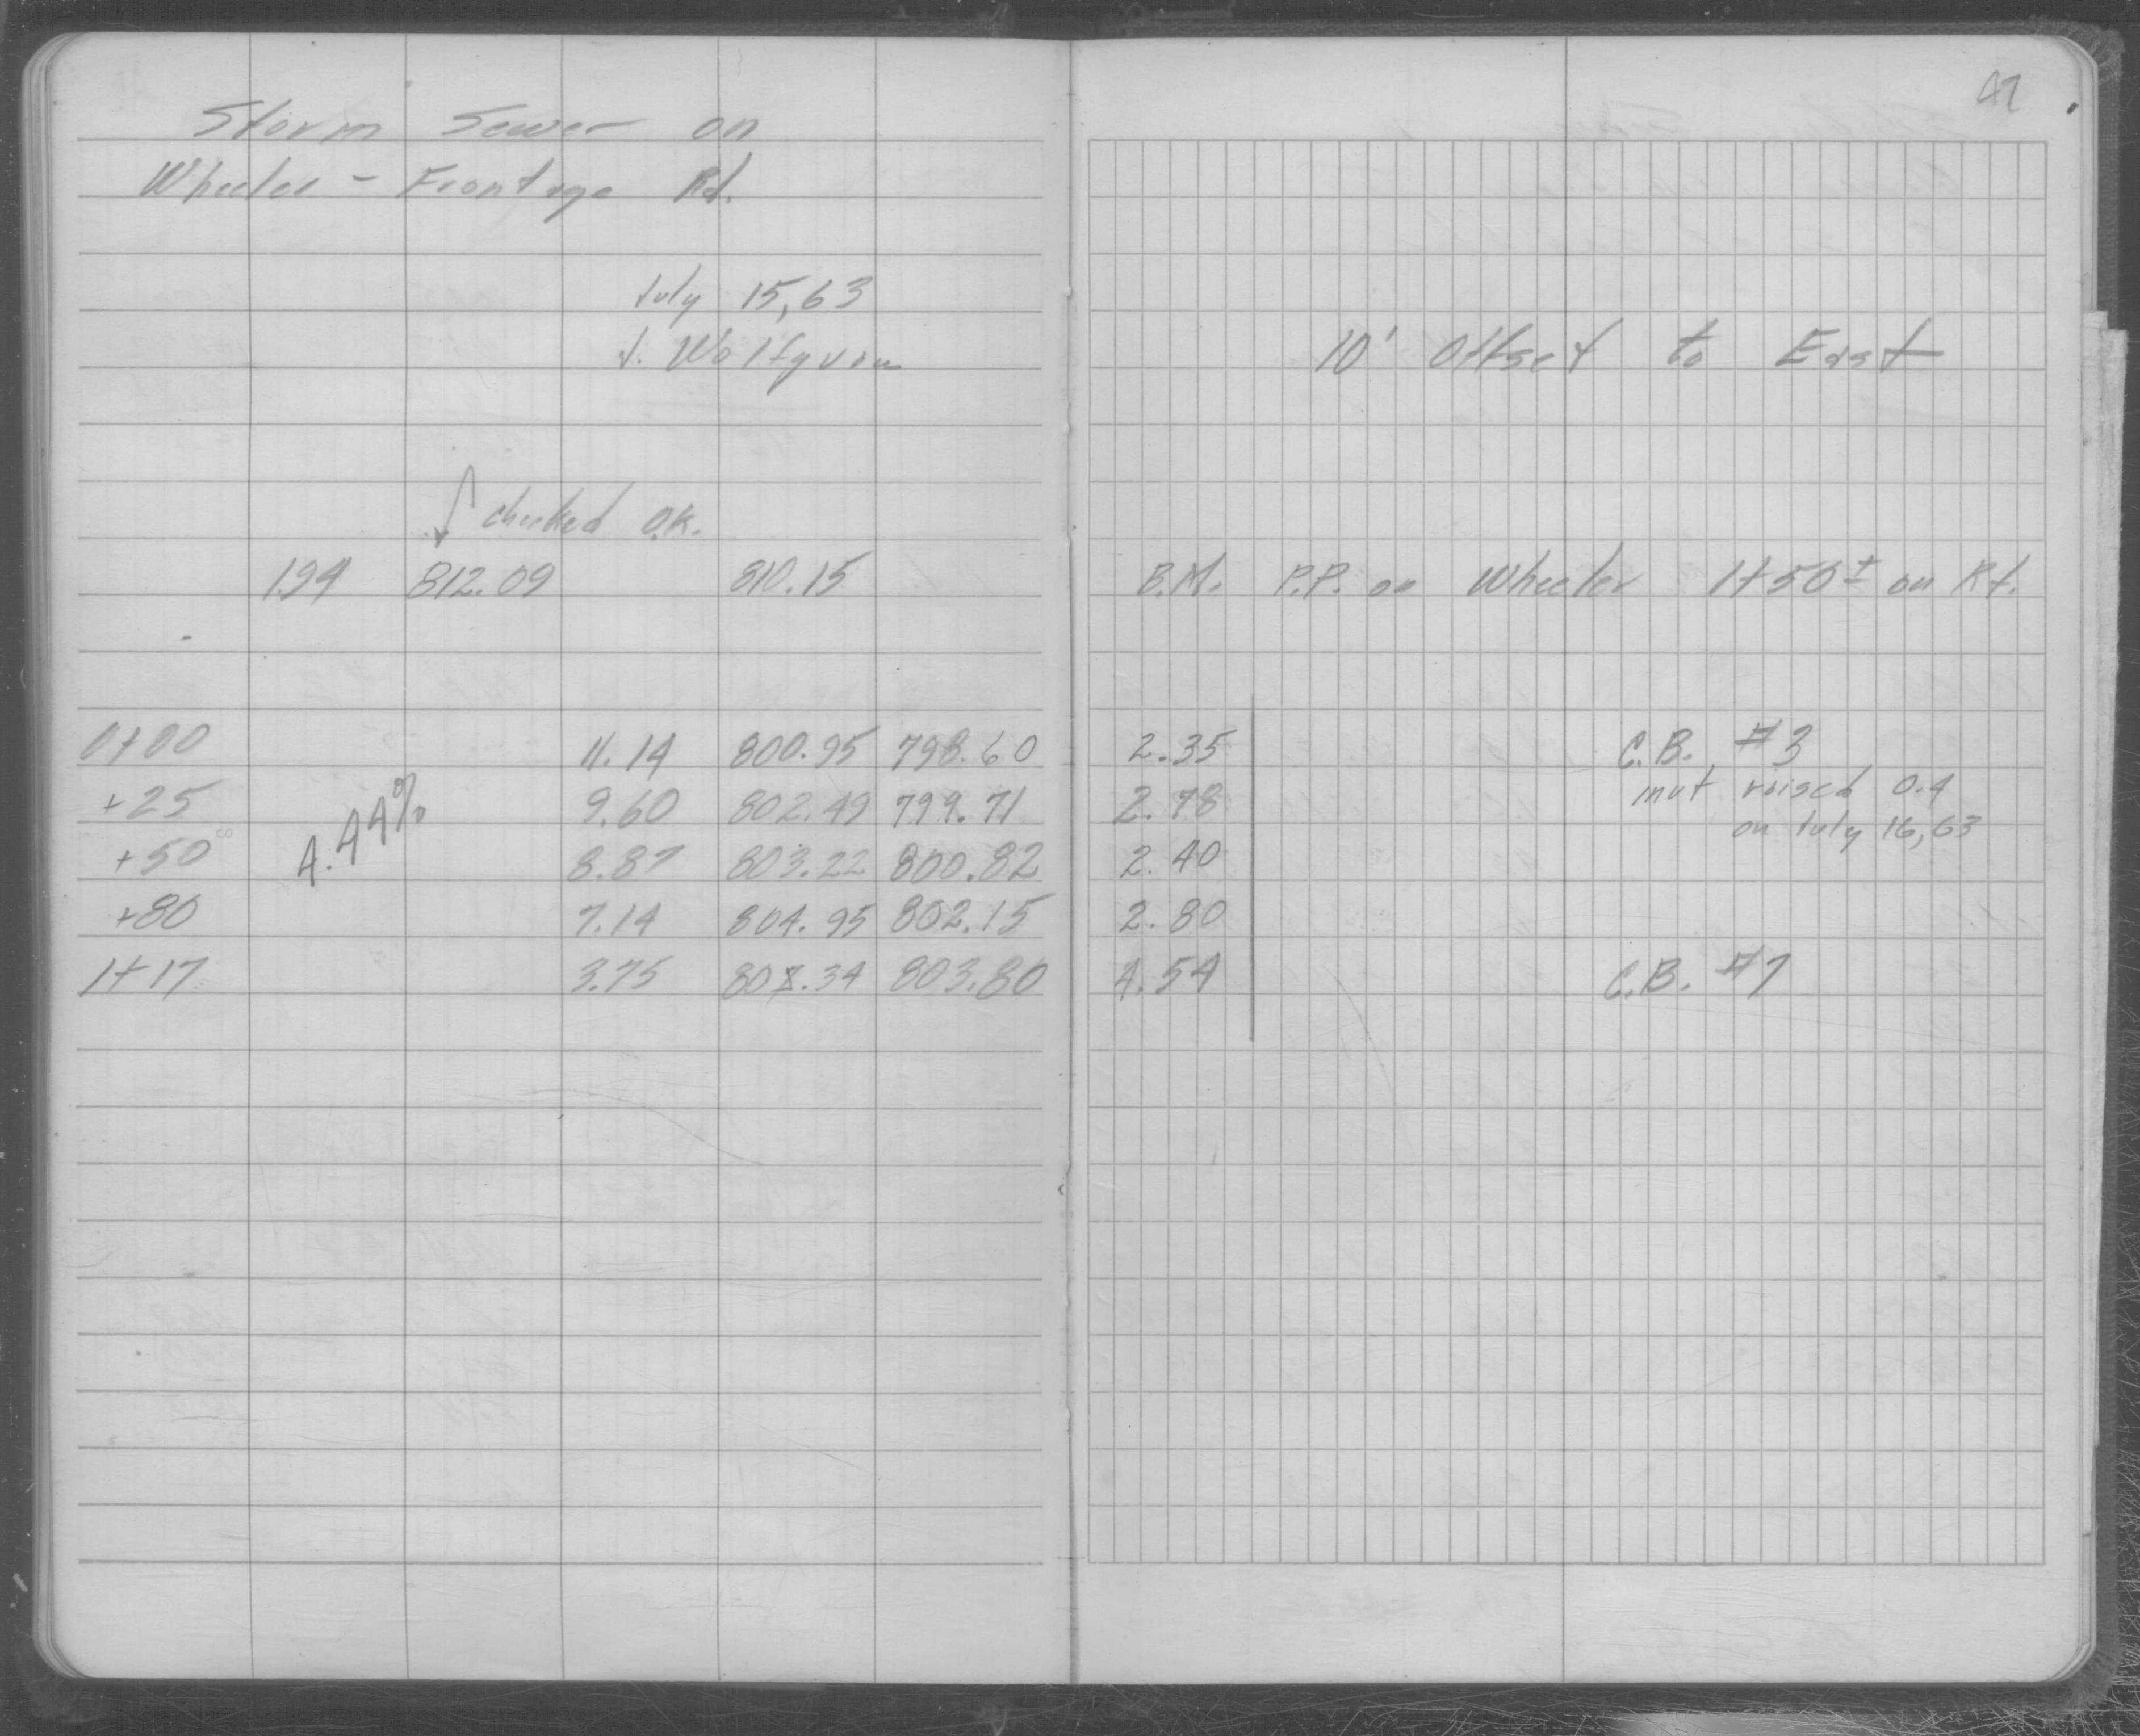 41
Storm Sewer on
Wheeler - Frontage Rd.
July 15, 63
10' Offset to East
checked O.K.
1.94 812.09 810.15 B.M. P.P. on Wheeler 1+50± on Rt.
0+00 11.14 800.95 798.60 2.35 C.B. #3
+25 9.60 802.49 799.71 2.78 inut raised 0.4
on July 16, 63
+50 4.44% 8.87 803.22 800.82 2.40
+80 7.14 804.95 802.15 2.80
1+17 3.75 808.34 803.80 4.54 C.B. #7